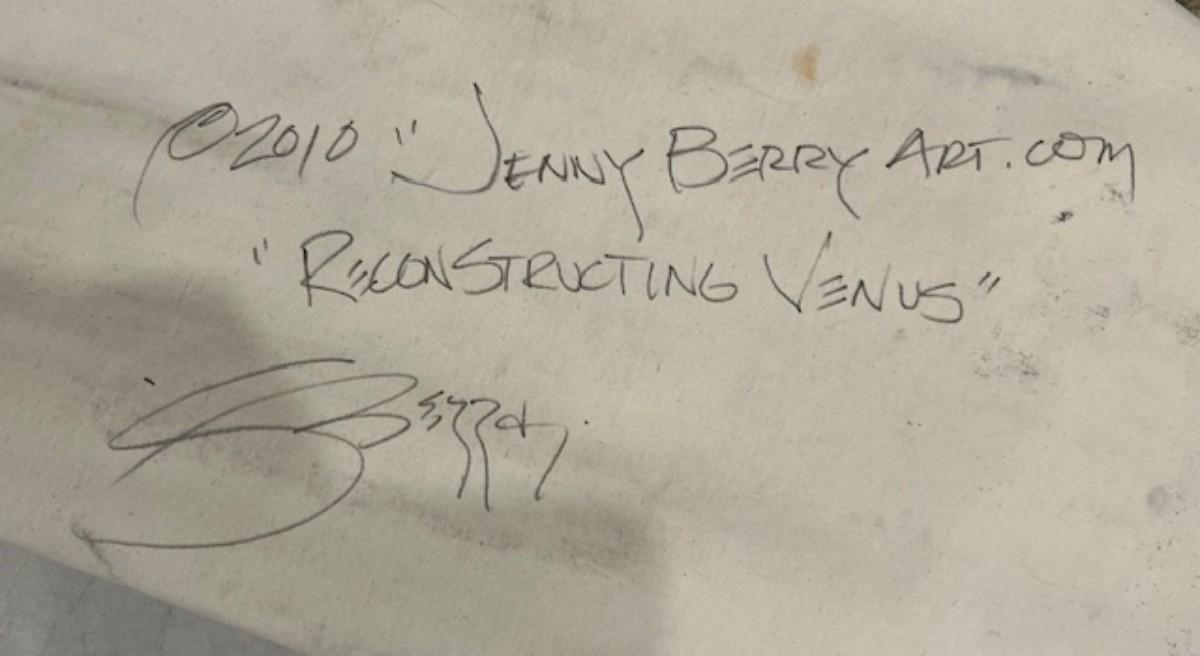 ©2010 "Jenny Berry Art.com
"Reconstructing Venus"
Berry